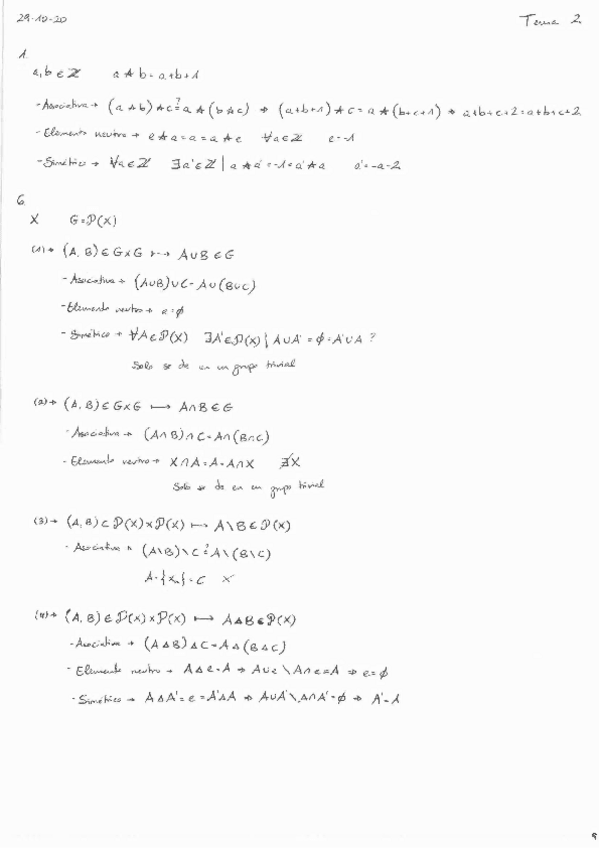 29-10-20
Tema 2
1.
a, b ∈ ℤ a ★ b = a+b+1
- Asociativa → (a ★ b) ★ c ?= a ★ (b ★ c) ⇒ (a+b+1) ★ c = a ★ (b+c+1) ⇒ a+b+c+2 = a+b+c+2
- Elemento neutro → e ★ a = a = a ★ e ∀a∈ℤ e=-1
- Simétrico → ∀a∈ℤ ∃a'∈ℤ | a ★ a' = -1 = a' ★ a a' = -a-2
6.
X G=P(X)
(1) → (A, B) ∈ G×G ↦ A∪B ∈ G
- Asociativa → (A∪B)∪C = A∪(B∪C)
- Elemento neutro → e = ∅
- Simétrico → ∀A∈P(X) ∃A'∈P(X) | A∪A' = ∅ = A'∪A ?
Solo se da en un grupo trivial
(2) → (A, B) ∈ G×G ↦ A∩B ∈ G
- Asociativa → (A∩B)∩C = A∩(B∩C)
- Elemento neutro → X∩A = A = A∩X ∄X
Solo se da en un grupo trivial
(3) → (A, B) ⊂ P(X)×P(X) ↦ A\B ∈ P(X)
- Asociativa → (A\B)\C ?= A\(B\C)
A = {x₀} = C X
(4) → (A, B) ∈ P(X)×P(X) ↦ A△B ∈ P(X)
- Asociativa → (A△B)△C = A△(B△C)
- Elemento neutro → A△e = A ⇒ A∪e \ A∩e = A ⇒ e = ∅
- Simétrico → A△A' = e = A'△A ⇒ A∪A' \ A∩A' = ∅ ⇒ A' = A